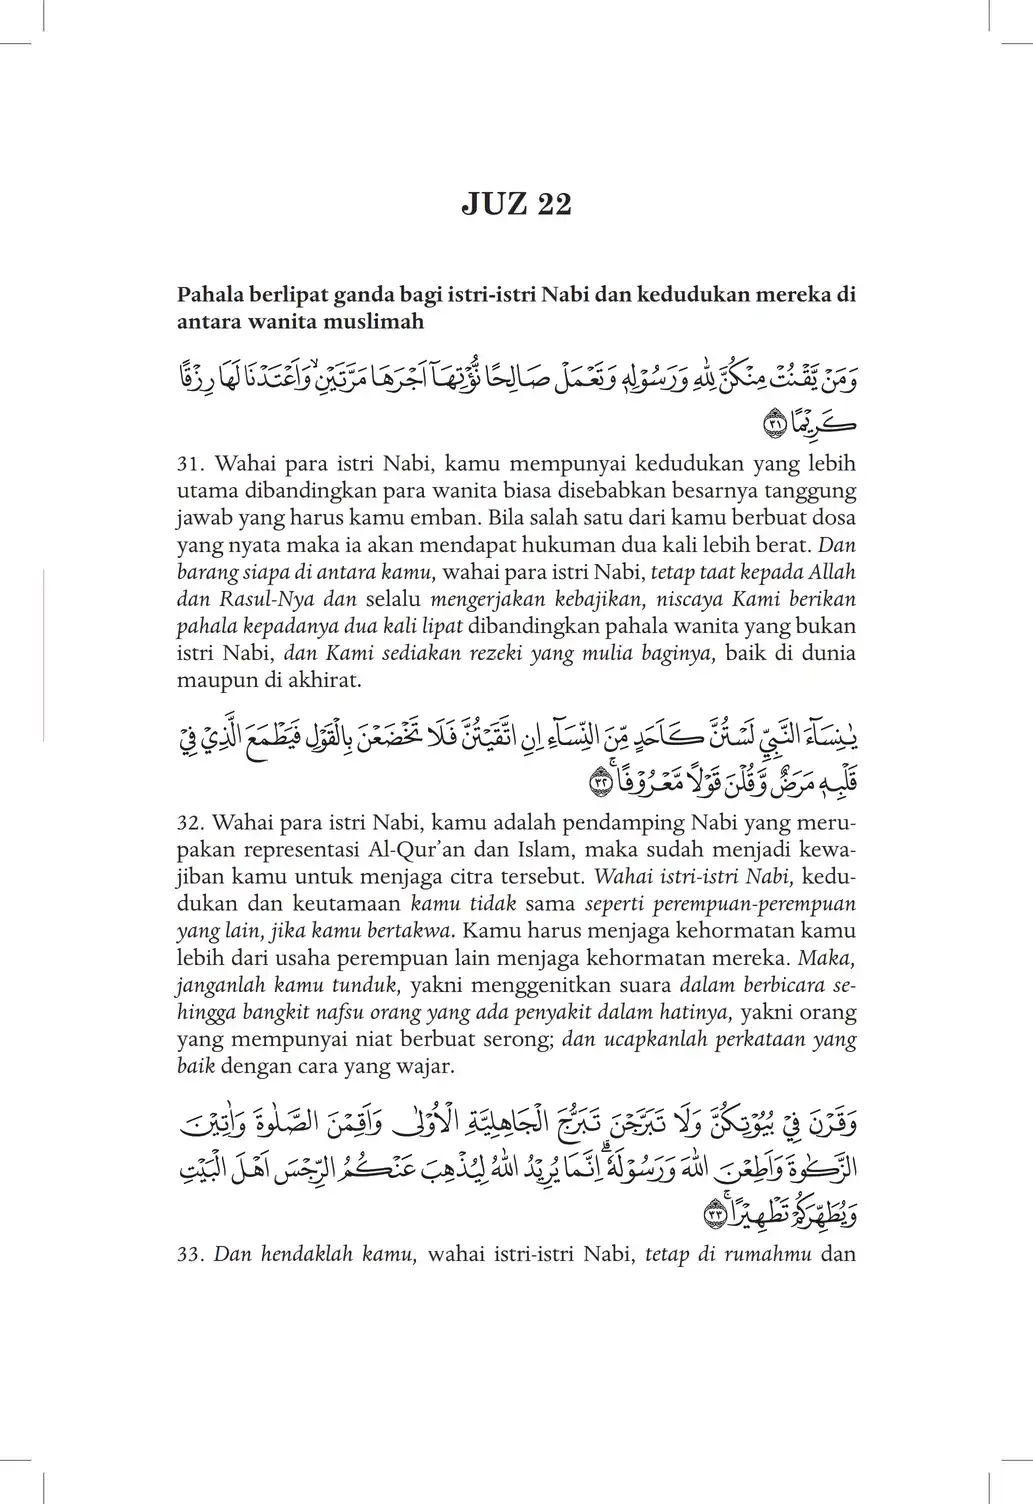 JUZ 22
Pahala berlipat ganda bagi istri-istri Nabi dan kedudukan mereka di
antara wanita muslimah
وَمَنْ يَّقْنُتْ مِنْكُنَّ لِلّٰهِ وَرَسُوْلِهٖ وَتَعْمَلْ صَالِحًا نُّؤْتِهَآ اَجْرَهَا مَرَّتَيْنِۙ وَاَعْتَدْنَا لَهَا رِزْقًا
كَرِيْمًا ٣١
31. Wahai para istri Nabi, kamu mempunyai kedudukan yang lebih
utama dibandingkan para wanita biasa disebabkan besarnya tanggung
jawab yang harus kamu emban. Bila salah satu dari kamu berbuat dosa
yang nyata maka ia akan mendapat hukuman dua kali lebih berat. Dan
barang siapa di antara kamu, wahai para istri Nabi, tetap taat kepada Allah
dan Rasul-Nya dan selalu mengerjakan kebajikan, niscaya Kami berikan
pahala kepadanya dua kali lipat dibandingkan pahala wanita yang bukan
istri Nabi, dan Kami sediakan rezeki yang mulia baginya, baik di dunia
maupun di akhirat.
يٰنِسَآءَ النَّبِيِّ لَسْتُنَّ كَاَحَدٍ مِّنَ النِّسَآءِ اِنِ اتَّقَيْتُنَّ فَلَا تَخْضَعْنَ بِالْقَوْلِ فَيَطْمَعَ الَّذِيْ فِيْ
قَلْبِهٖ مَرَضٌ وَّقُلْنَ قَوْلًا مَّعْرُوْفًاۚ ٣٢
32. Wahai para istri Nabi, kamu adalah pendamping Nabi yang meru-
pakan representasi Al-Qur’an dan Islam, maka sudah menjadi kewa-
jiban kamu untuk menjaga citra tersebut. Wahai istri-istri Nabi, kedu-
dukan dan keutamaan kamu tidak sama seperti perempuan-perempuan
yang lain, jika kamu bertakwa. Kamu harus menjaga kehormatan kamu
lebih dari usaha perempuan lain menjaga kehormatan mereka. Maka,
janganlah kamu tunduk, yakni menggenitkan suara dalam berbicara se-
hingga bangkit nafsu orang yang ada penyakit dalam hatinya, yakni orang
yang mempunyai niat berbuat serong; dan ucapkanlah perkataan yang
baik dengan cara yang wajar.
وَقَرْنَ فِيْ بُيُوْتِكُنَّ وَلَا تَبَرَّجْنَ تَبَرُّجَ الْجَاهِلِيَّةِ الْاُوْلٰى وَاَقِمْنَ الصَّلٰوةَ وَاٰتِيْنَ
الزَّكٰوةَ وَاَطِعْنَ اللّٰهَ وَرَسُوْلَهٗۗ اِنَّمَا يُرِيْدُ اللّٰهُ لِيُذْهِبَ عَنْكُمُ الرِّجْسَ اَهْلَ الْبَيْتِ
وَيُطَهِّرَكُمْ تَطْهِيْرًاۚ ٣٣
33. Dan hendaklah kamu, wahai istri-istri Nabi, tetap di rumahmu dan